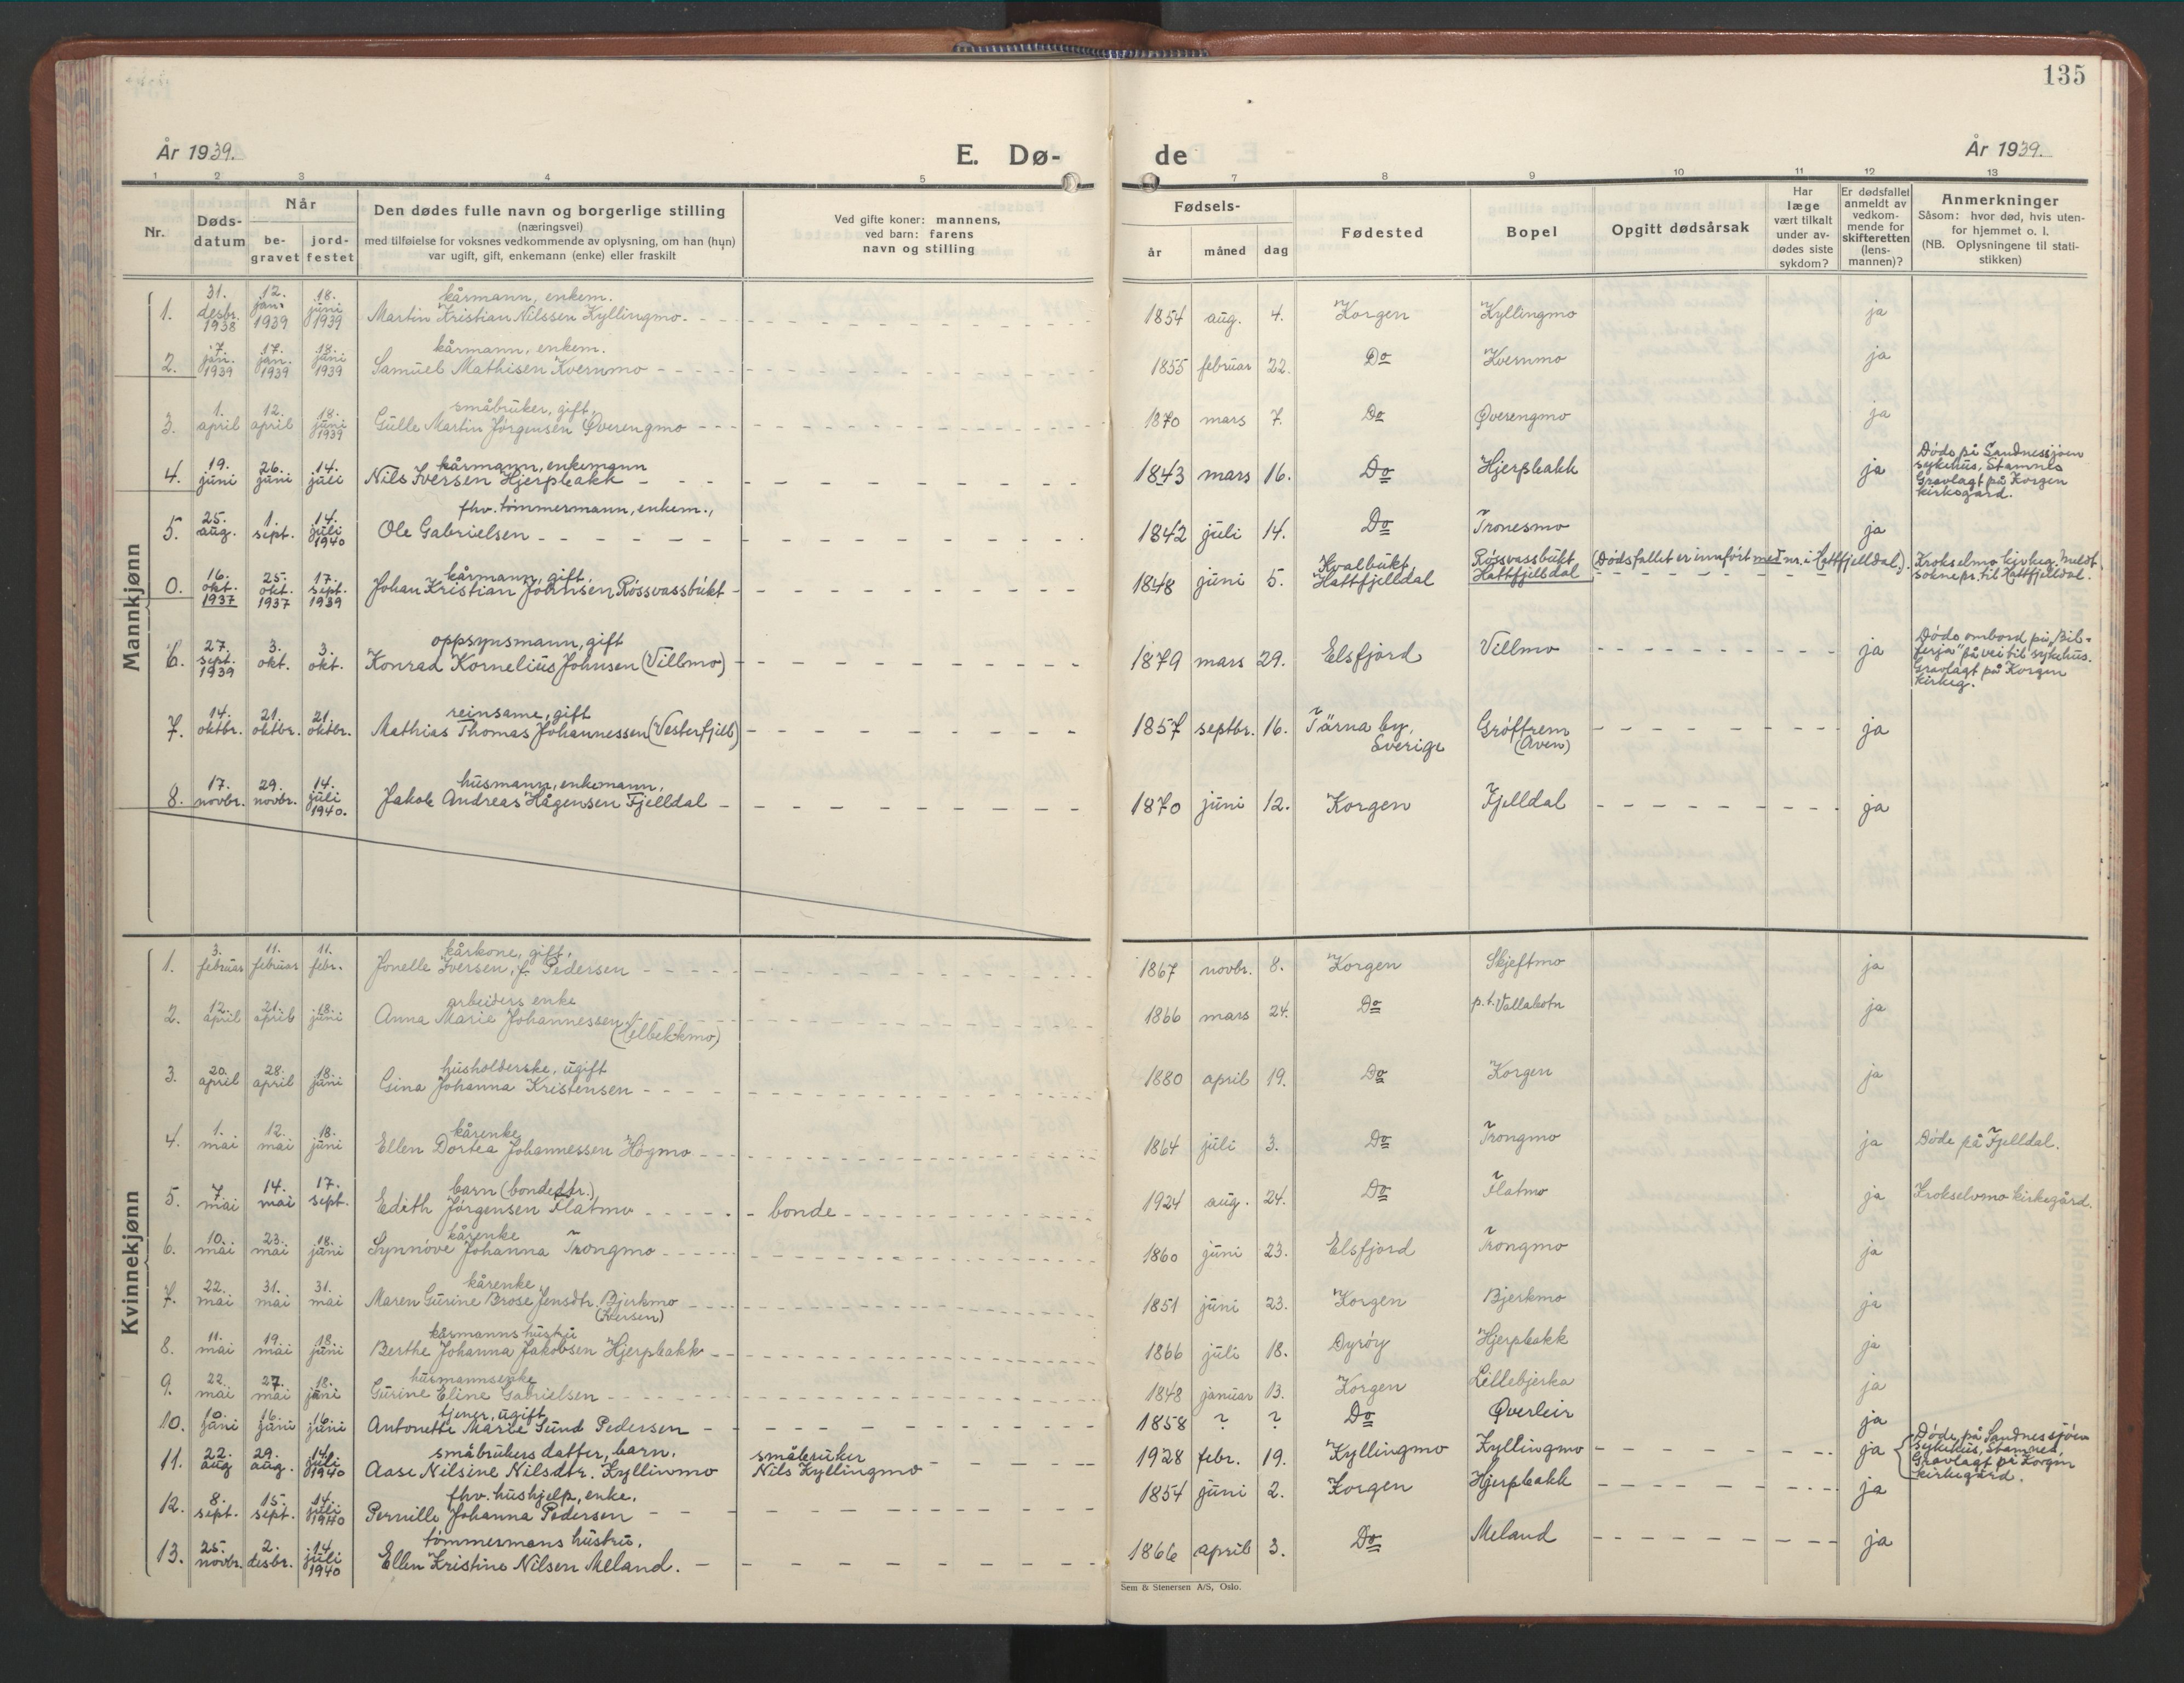 135
År 1939.
E. Dø-
de
År 1939.
1 2 3 4 5 7 8 9 10 11 12 13
Nr.
Døds-
datum
Når
be-
gravet
jord-
festet
Den dødes fulle navn og borgerlige stilling
(næringsvei)
med tilføielse for voksnes vedkommende av oplysning, om han (hun)
var ugift, gift, enkemann (enke) eller fraskilt
Ved gifte koner: mannens,
ved barn: farens
navn og stilling
Fødsels-
år måned dag
Fødested
Bopel
Opgitt dødsårsak
Har
læge
vært tilkalt
under av-
dødes siste
sykdom?
Er dødsfallet
anmeldt av
vedkom-
mende for
skifteretten
(lens-
mannen)?
Anmerkninger
Såsom: hvor død, hvis uten-
for hjemmet o. l.
(NB. Oplysningene til stati-
stikken)
Mannkjønn
1. 31. desbr. 1938 12. jan. 1939 18. juni 1939 kårmann, enkem.
Martin Kristian Nilssen Kyllingmo. 1854 aug. 4. Korgen Kyllingmo ja
2. 7. jan. 1939 17. jan. 1939 18. juni 1939 kårmann, enkem.
Samuel Mathisen Kvernmo 1855 februar 22. Do Kvernmo ja
3. 1. april 12. april 18. juni 1939 småbruker, gift,
Gulle Martin Jørgensen Øverengmo 1870 mars 7. Do Øverengmo ja
4. 19. juni 26. juni 14. juli kårmann, enkemann
Nils Iversen Hjerpbakk 1843 mars 16. Do Hjerpbakk ja Døde på Sandnessjøen
sykehus, Stamnes
Gravlagt på Korgen
kirkegård.
5. 25. aug. 1. sept. 14. juli 1940 fhv. tømmermann, enkem.,
Ole Gabrielsen 1842 juli 14. Do Tronesmo ja
0. 16. okt. 1937 25. okt. 1937 17. sept. 1939 kårmann, gift,
Johan Kristian Johnsen Røssvassbukt 1848 juni 5. Kvalbukt, Hattfjelldal Røssvassbukt Hattfjelldal (Dødsfallet er innført med nr. i Hattfjelldal.). Krokselmo kirkeg. meldt
sognepr. til Hattfjelldal.
6. 27. sept. 1939 3. okt. 3. okt. oppsynsmann, gift
Konrad Kornelius Johnsen (Villmo) 1879 mars 29. Elsfjord Villmo ja Døde ombord på "Bil-
ferja" på vei til sykehus.
Gravlagt på Korgen
kirkeg.
7. 14. oktbr. 21. oktbr. 21. oktbr. reinsame, gift
Mathias Thomas Johannessen (Vesterfjell) 1857 septbr. 16. Tärna by, Sverige Grøftrem (Aven) ja
8. 17. novbr. 29. novbr. 14. juli 1940. husmann, enkemann,
Jakob Andreas Hågensen Fjelldal 1870 juni 12. Korgen Fjelldal ja
Kvinnekjønn
1. 3. februar 11. februar 11. febr. kårkone, gift,
Jonelle Iversen, f. Pedersen 1867 novbr. 8. Korgen Skjeftmo ja
2. 12. april 21. april 18. juni arbeiders enke
Anna Marie Johannessen 1866 mars 24. Do p.t. Vallabotn ja
3. 20. april 28. april 18. juni husholderske, ugift
Gina Johanna Kristensen 1880 april 19. Do Korgen ja
4. 1. mai 12. mai 18. juni kårenke
Ellen Dortea Johannessen Høgmo 1864 juli 3. Do Trongmo ja Døde på Fjelldal.
5. 7. mai 14. mai 17. sept. barn (bondedtr.)
Edith Jørgensen Flatmo bonde 1924 aug. 24. Do Flatmo ja Krokselvmo kirkegård.
6. 10. mai 23. mai 18. juni kårenke
Synnøve Johanna Trongmo 1860 juni 23. Elsfjord Trongmo ja
7. 22. mai 31. mai 31. mai kårenke
Maren Gurine Brose Jensdtr. Bjerkmo
(Iversen) 1851 juni 23. Korgen Bjerkmo ja
8. 11. mai 19. mai 18. juni kårmanns hustru
Berthe Johanna Jakobsen Hjerpbakk 1866 juli 18. Dyrøy Hjerpbakk ja
9. 22. mai 27. mai 18. juni husmannsenke
Gurine Eline Gabrielsen 1848 januar 13. Korgen Lillebjerka ja
10. 10. juni 16. juni 16. juni tjener, ugift
Antonette Marie Sund Pedersen 1858 ? ? Do Øverleir ja
11. 22. aug 29. aug. 14. juli 1940 småbrukers datter, barn.
Aase Nilsine Nilsdtr. Kyllinmo småbruker
Nils Kyllingmo 1928 febr. 19. Kyllingmo Kyllingmo ja Døde på Sandnessjøen
sykehus, Stamnes,
Gravlagt på Korgen
kirkegård.
12. 8. sept. 15. sept. 14. juli 1940 fhv. hushjelp, enke.
Pernille Johanna Pedersen 1854 juni 2. Korgen Hjerpbakk ja
13. 25. novbr. 2. desbr. 14. juli 1940 tømmermans hustru,
Ellen Kristine Nilsen Meland. 1866 april 3. Do Meland ja
Sem & Stenersen A/S, Oslo.